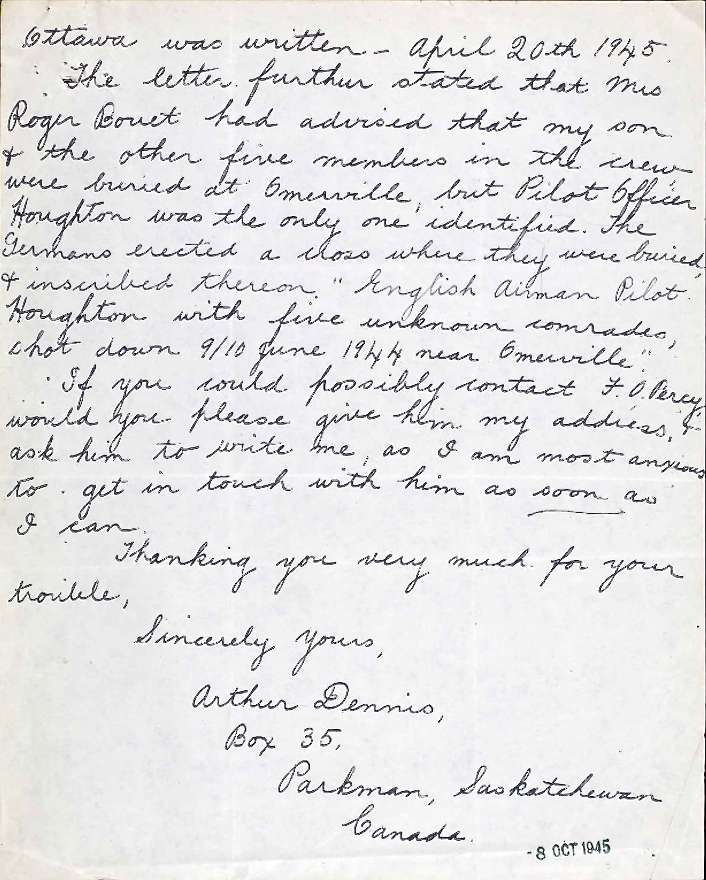 Ottawa was written - April 20th 1945.
The letter furthur stated that Mrs
Roger Bouet had advised that my son
& the other five members in the crew
were buried at Omerville, but Pilot Officer
Houghton was the only one identified. The
Germans erected a cross where they were buried,
& inscribed thereon "English Airman Pilot
Houghton with five unknown comrades,
shot down 9/10 June 1944 near Omerville".
If you could possibly contact F.O. Percy,
would you please give him my address, &
ask him to write me, as I am most anxious
to get in touch with him as soon as
I can.
Thanking you very much for your
trouble,
Sincerely yours,
Arthur Dennis,
Box 35,
Parkman, Saskatchewan
Canada.
- 8 OCT 1945